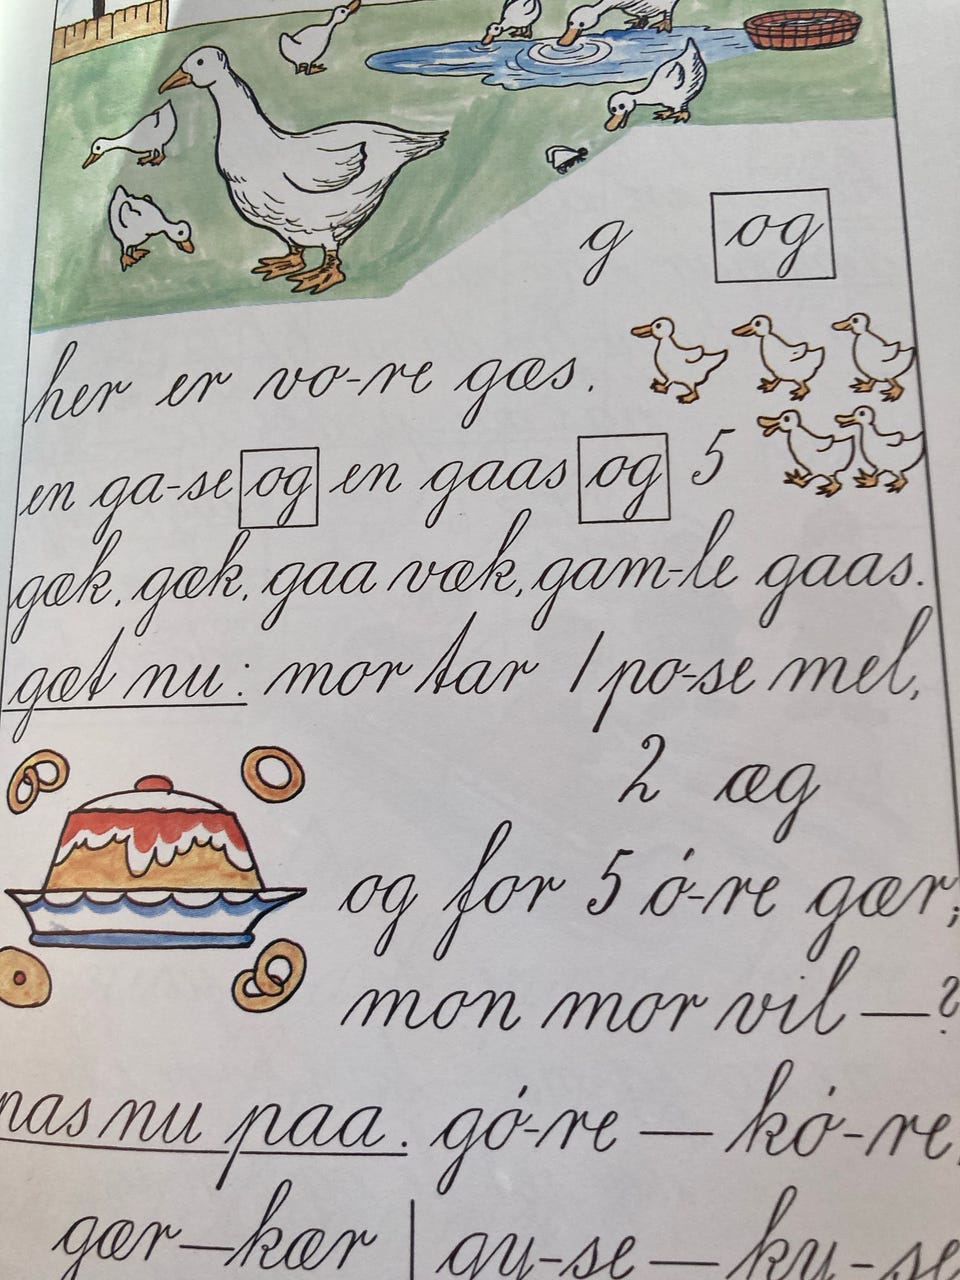 g og
her er vo-re gæs.
en ga-se og en gaas og 5
gæk, gæk, gaa væk, gam-le gaas.
gæt nu: mor tar 1 po-se mel,
2 æg
og for 5 ó-re gær;
mon mor vil — ?
pas nu paa. gó-re — kó-re,
gær — kær | gy-se — ky-se